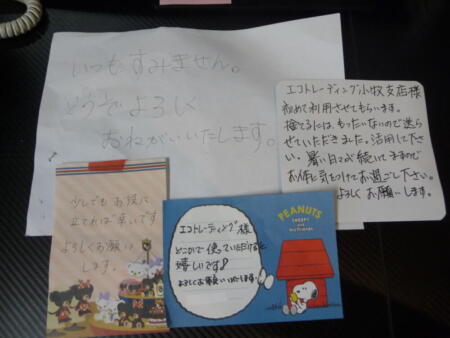 いつもすみません。
どうぞよろしく
おねがいいたします。
エコトレーディング小牧支店様
初めて利用させてもらいます。
捨てるには、もったいないので送ら
せていただきました。活用して下さ
い。暑い日々が続いてますので
お体に気をつけてお過ご下さい。
よろしくお願いします。
少しでもお役に
立てれば幸いです
よろしくお願い
します。
エコトレーディング様
どこかで使っていただけると
嬉しいです♪
よろしくお願いいたします。
PEANUTS
SNOOPY